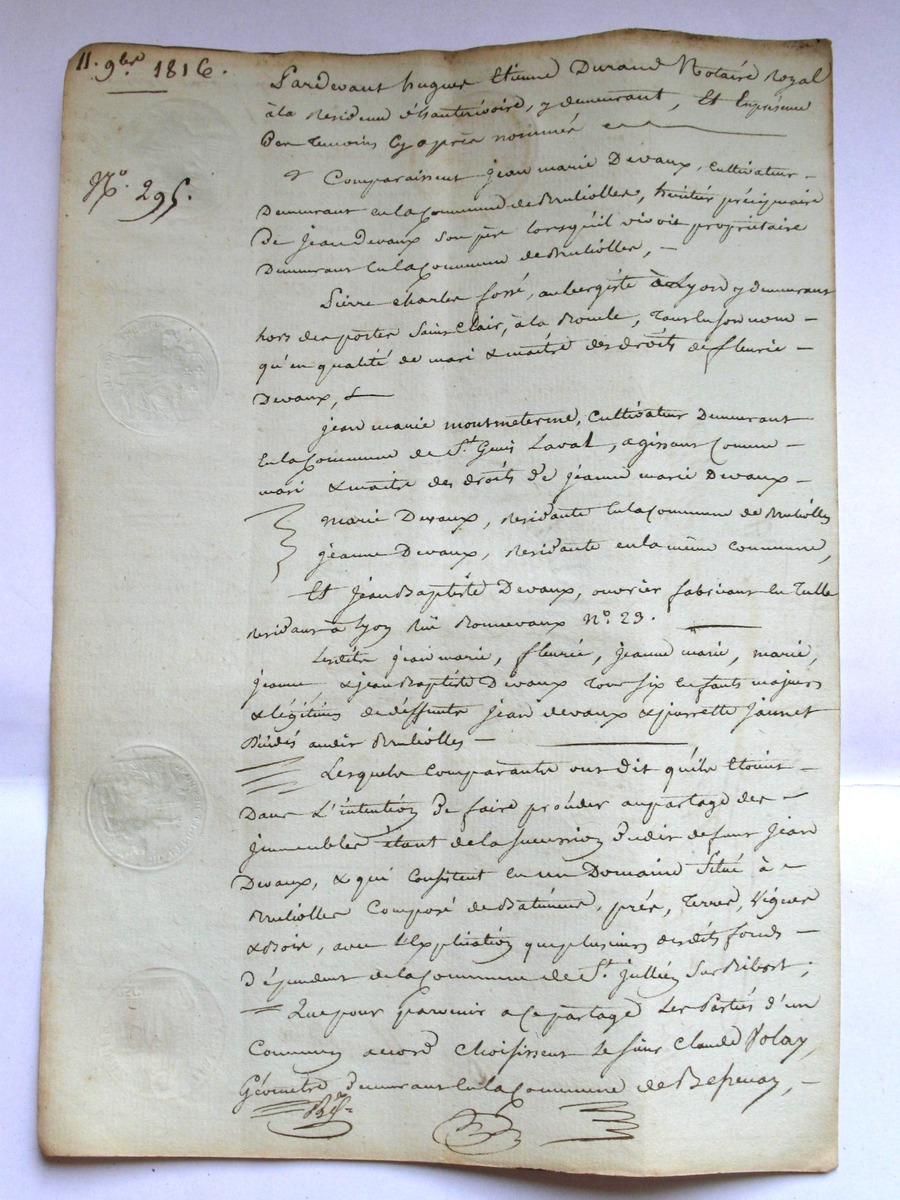 11. 9bre 1816.
No. 295.
Pardevant hugues Etienne Durand Notaire royal
à la Residence d'hauterivoire, y demeurant, et En présence
Des Temoins Cy après nommés
Comparaissent jean marie Devaux, cultivateur
Demeurant en la Commune de Brullolles, heritier préciputaire
De jean Devaux son père lorsqu'il vivoit propriétaire
Demeurant en la Commune de Brullolles,
Pierre charles fossé, aubergiste à Lyon y demeurant
hors des portes Saint Clair, à la Boucle, Tant en son nom
qu'en qualité de mari & maitre des droits de fleurie
Devaux,
jean marie montmeterme, Cultivateur Demeurant
En la Commune de St. Genis Laval, agissant Comme
mari & maitre des droits de jeanne marie Devaux
Marie Devaux, residante En la Commune de Brullolles
jeanne Devaux, residante en la même commune,
Et jean Baptiste Devaux, ouvrier fabricant en Tulle
residant à Lyon Rue Roncevaux No. 29.
Lesdits jean marie, fleurie, jeanne marie, marie,
jeanne & jean Baptiste Devaux Tous six Enfants majeurs
& légitimes de deffunts jean devaux & pierrette jaunet
Décédés audit Brullolles
Lesquels Comparants ont dit qu'ils Etoient
Dans L'intention De faire procéder au partage des
jmmeubles étant de la succession Dudit defunt jean
Devaux, & qui Consistent en un Domaine Situé à
Brullolles Composé de Batiments, prés, Terres, Vignes
& Bois, avec L'Explication que plusieurs desdits fonds
Dépendent de la Commune de St. jullien Sur Bibost;
Que pour parvenir a Ce partage Les Parties d'un
Commun accord Choisissent le Sieur Claude Polay,
Géometre Demeurant en la Commune de Bessenay,